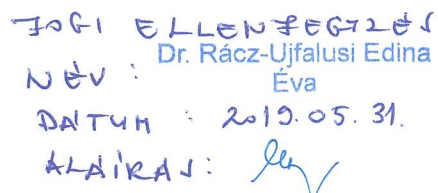 JOGI ELLENJEGYZÉS
NÉV : Dr. Rácz-Ujfalusi Edina
Éva
DÁTUM : 2019.05.31.
ALÁÍRÁS: